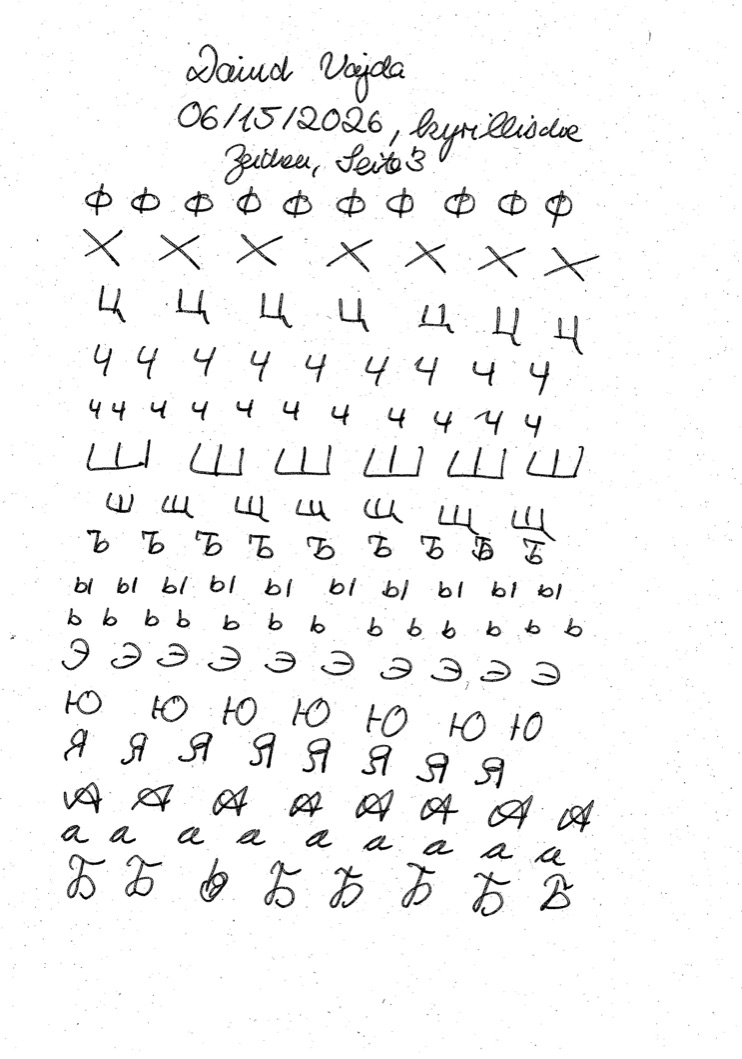 David Vajda
06/15/2026, kyrillische
Zeichen, Seite 3
Ф Ф Ф Ф Ф Ф Ф Ф Ф Ф
Х Х Х Х Х Х Х
Ц Ц Ц Ц Ц Ц Ц
Ч Ч Ч Ч Ч Ч Ч Ч Ч
ч ч ч ч ч ч ч ч ч ч ч
Ш Ш Ш Ш Ш Ш
ш щ щ щ щ щ щ
Ъ Ъ Ъ Ъ Ъ Ъ Ъ Ъ Ъ
ы ы ы ы ы ы ы ы ы ы
ь ь ь ь ь ь ь ь ь ь ь ь ь
Э Э Э Э Э Э Э Э Э Э
Ю Ю Ю Ю Ю Ю Ю
Я Я Я Я Я Я Я Я
А А А А А А А А
а а а а а а а а а
Б Б Б Б Б Б Б